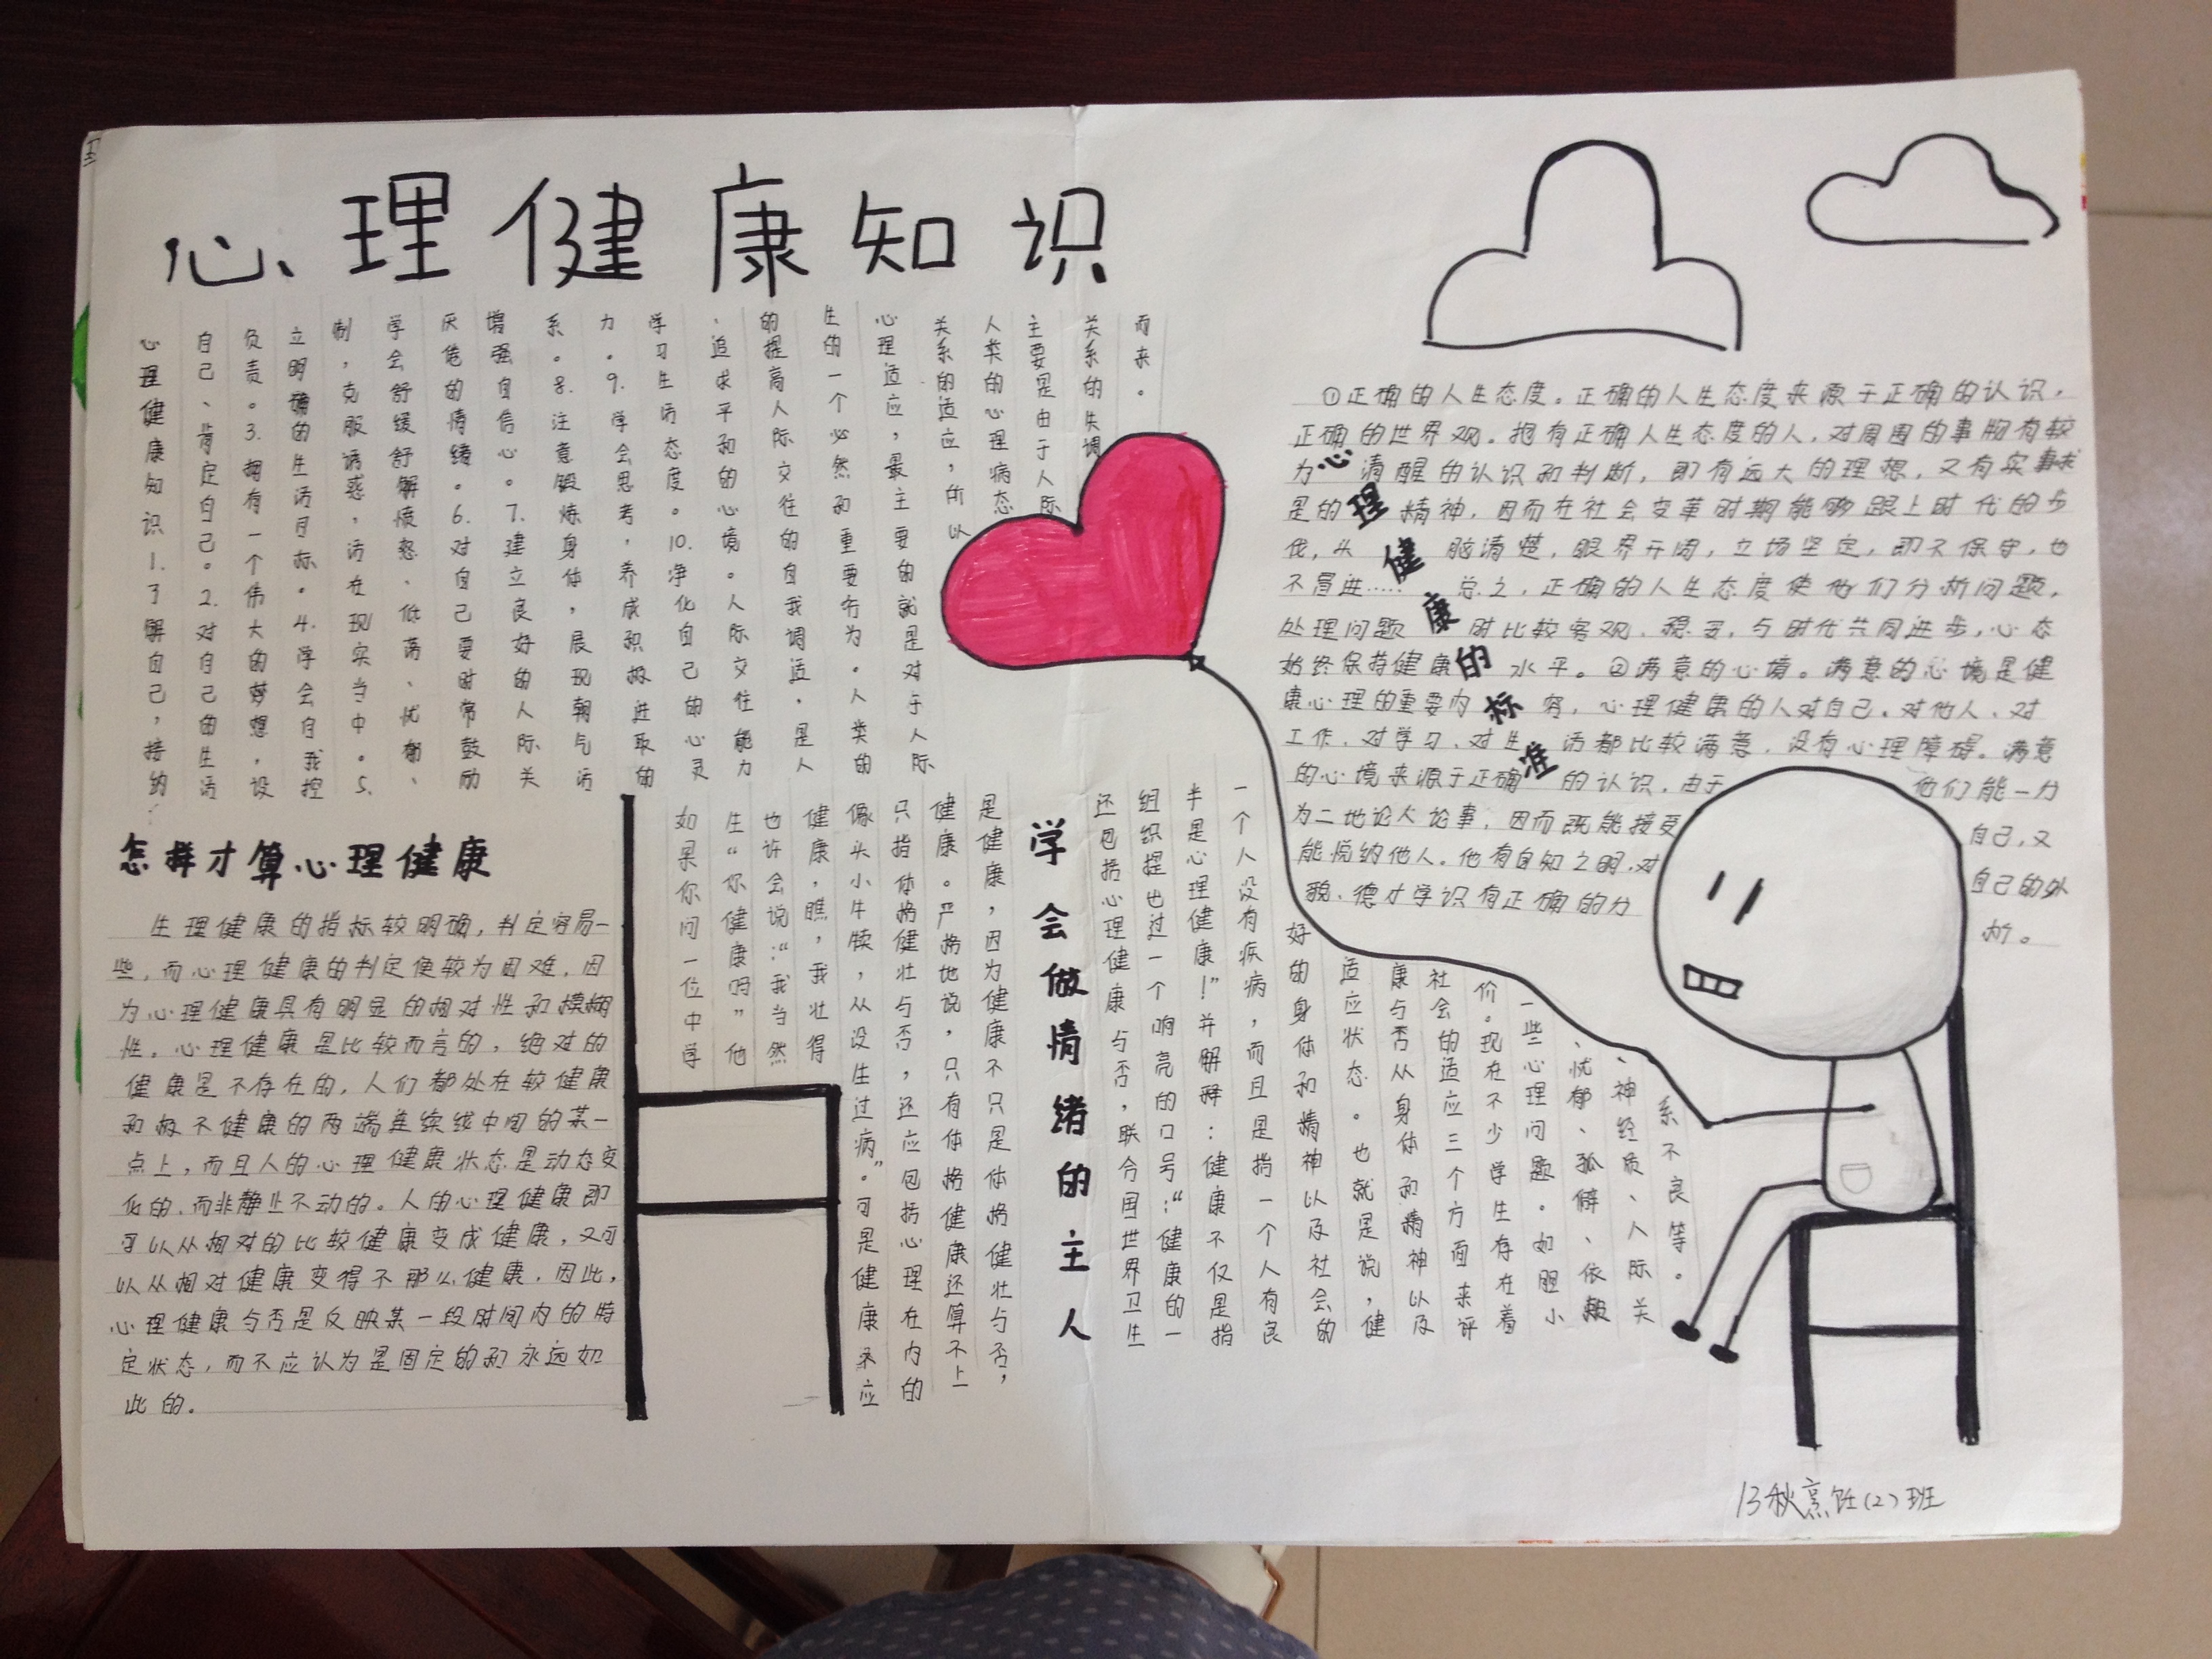 心理健康知识
心理健康知识1.了解自己,接纳
自己、肯定自己。2.对自己的生活
负责。3.拥有一个伟大的梦想,设
立明确的生活目标。4.学会自我控
制,克服诱惑,活在现实当中。5.
学会舒缓舒解愤怒、低落、忧郁、
厌倦的情绪。6.对自己要时常鼓励
增强自信心。7.建立良好的人际关
系。8.注意锻炼身体,展现朝气活
力。9.学会思考,养成积极进取的
学习生活态度。10.净化自己的心灵
、追求平和的心境。人际交往能力
的提高人际交往的自我调适,是人
生的一个必然和重要行为。人类的
心理适应,最主要的就是对于人际
关系的适应,所以
人类的心理病态
主要是由于人际
关系的失调
而来。
怎样才算心理健康
生理健康的指标较明确,判定容易一
些,而心理健康的判定便较为困难,因
为心理健康具有明显的相对性和模糊
性。心理健康是比较而言的,绝对的
健康是不存在的,人们都处在较健康
和极不健康的两端连续线中间的某一
点上,而且人的心理健康状态是动态变
化的,而非静止不动的。人的心理健康即
可以从相对的比较健康变成健康,又可
以从相对健康变得不那么健康,因此,
心理健康与否是反映某一段时间内的特
定状态,而不应认为是固定的和永远如
此的。
如果你问一位中学
生“你健康吗”他
也许会说:“我当然
健康,瞧,我壮得
像头小牛犊,从没生过病”。可是健康不应
只指体格健壮与否,还应包括心理在内的
健康。严格地说,只有体格健康还算不上
是健康,因为健康不只是体格健壮与否,
学会做情绪的主人
还包括心理健康与否,联合国世界卫生
组织提也过一个响亮的口号:“健康的一
半是心理健康!”并解释:健康不仅是指
一个人没有疾病,而且是指一个人有良
好的身体和精神以及社会的
适应状态。也就是说,健
康与否从身体和精神以及
社会的适应三个方面来评
价。现在不少学生存在着
一些心理问题。如胆小
、忧郁、孤僻、依赖
、神经质、人际关
系不良等。
心理健康的标准
①正确的人生态度。正确的人生态度来源于正确的认识,
正确的世界观。抱有正确人生态度的人,对周围的事物有较
为清醒的认识和判断,即有远大的理想,又有实事求
是的精神,因而在社会变革时期能够跟上时代的步
伐,头脑清楚,眼界开阔,立场坚定,即不保守,也
不冒进……总之,正确的人生态度使他们分析问题,
处理问题时比较客观、稳妥,与时代共同进步,心态
始终保持健康的水平。②满意的心境。满意的心境是健
康心理的重要内容,心理健康的人对自己、对他人、对
工作、对学习、对生活都比较满意,没有心理障碍。满意
的心境来源于正确的认识,由于他们能一分
为二地论人论事,因而既能接受自己,又
能悦纳他人。他有自知之明,对自己的外
貌、德才学识有正确的分析。
13秋烹饪(2)班